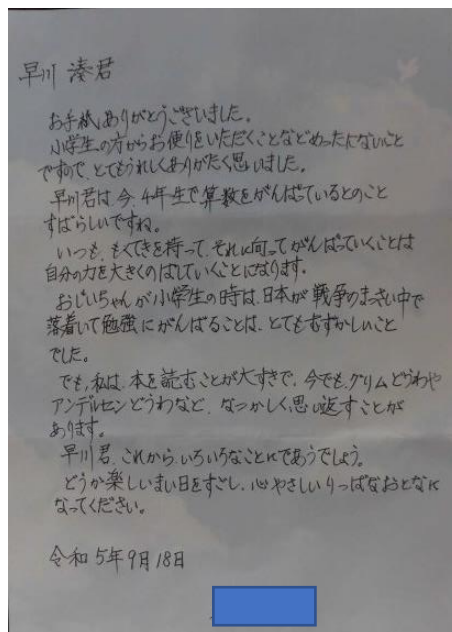 早川 湊君
お手紙ありがとうございました。
小学生の方からお便りをいただくことなどめったにないこと
ですので、とてもうれしくありがたく思いました。
早川君は、今、4年生で算数をがんばっているとのこと
すばらしいですね。
いつも、もくてきを持って、それに向ってがんばっていくことは
自分の力を大きくのばしていくことになります。
おじいちゃんが小学生の時は、日本が戦争のまっさい中で
落着いて勉強にがんばることは、とてもむずかしいこと
でした。
でも、私は、本を読むことが大すきで、今でも、グリムどうわや
アンデルセンどうわなど、なつかしく思い返すことが
あります。
早川君、これから、いろいろなことにであうでしょう。
どうか楽しいまい日をすごし、心やさしいりっぱなおとなに
なってください。
令和5年9月18日